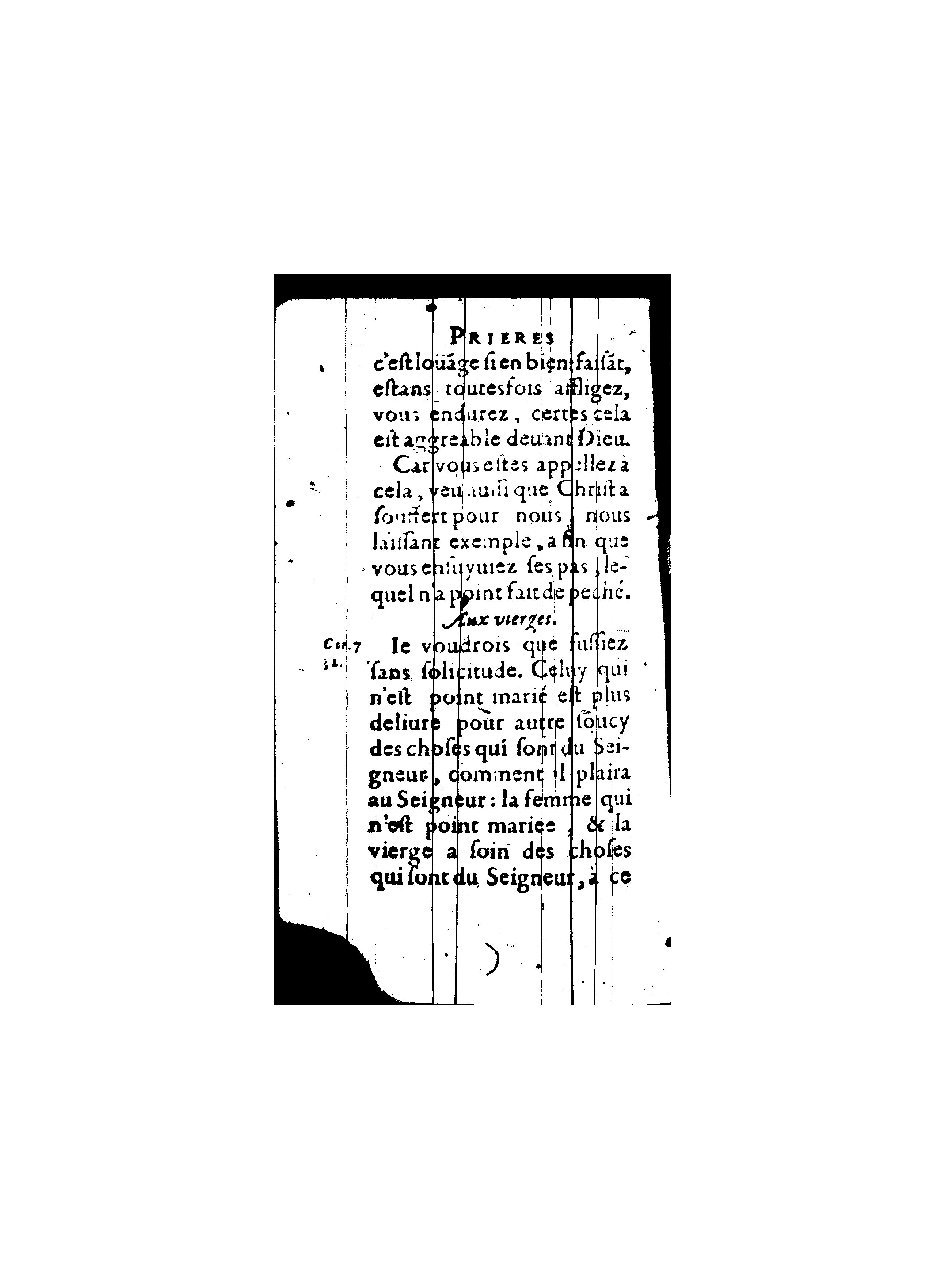 PRIERES
c'eſt loüãge ſi en bien faiſãt,
eſtans toutesfois affligez,
vous endurez, certes cela
eſt aggreable deuant Dieu.
Car vous eſtes appellez à
cela, veu auſſi que Chriſt a
ſouffert pour nous, nous
laiſſant exemple, afin que
vous enſuyuiez ſes pas, le-
quel n'a point fait de peché.
Aux vierges.
Ie voudrois que fuſſiez
ſans ſolicitude. Celuy qui
n'eſt point marié eſt plus
deliure pour autre ſoucy
des choſes qui ſont du Sei-
gneur, comment il plaira
au Seigneur: la femme qui
n'eſt point mariee, & la
vierge a ſoin des choſes
qui ſont du Seigneur, à ce